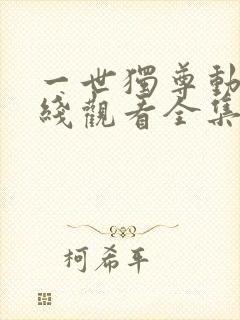 一世獨尊動
綫觀看全集
柯希平